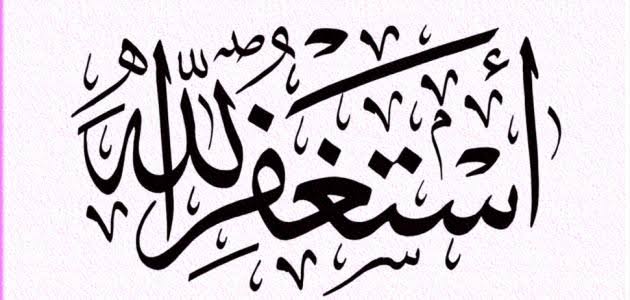 أستغفر الله